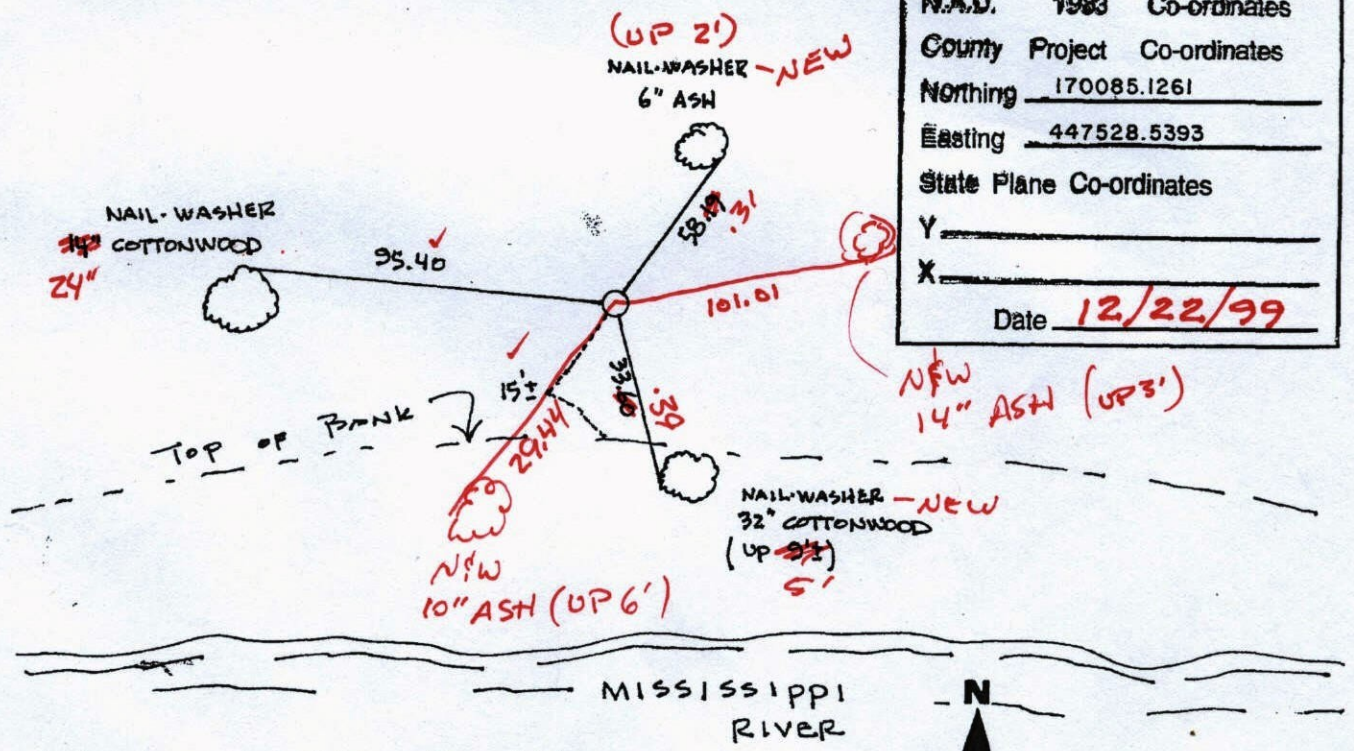 N.A.D. 1983 Co-ordinates
County Project Co-ordinates
Northing 170085.1261
Easting 447528.5393
State Plane Co-ordinates
Y
X
Date 12/22/99
(UP 2')
NAIL-WASHER - NEW
6" ASH
58.19 .31
NAIL-WASHER
14" COTTONWOOD
24"
95.40 ✓
101.01
N&W
14" ASH (UP 3')
✓
15'±
29.44
33.60 .39
TOP OF BANK
NAIL-WASHER - NEW
32" COTTONWOOD
(UP 9'±)
5'
N&W
10" ASH (UP 6')
MISSISSIPPI
RIVER
N